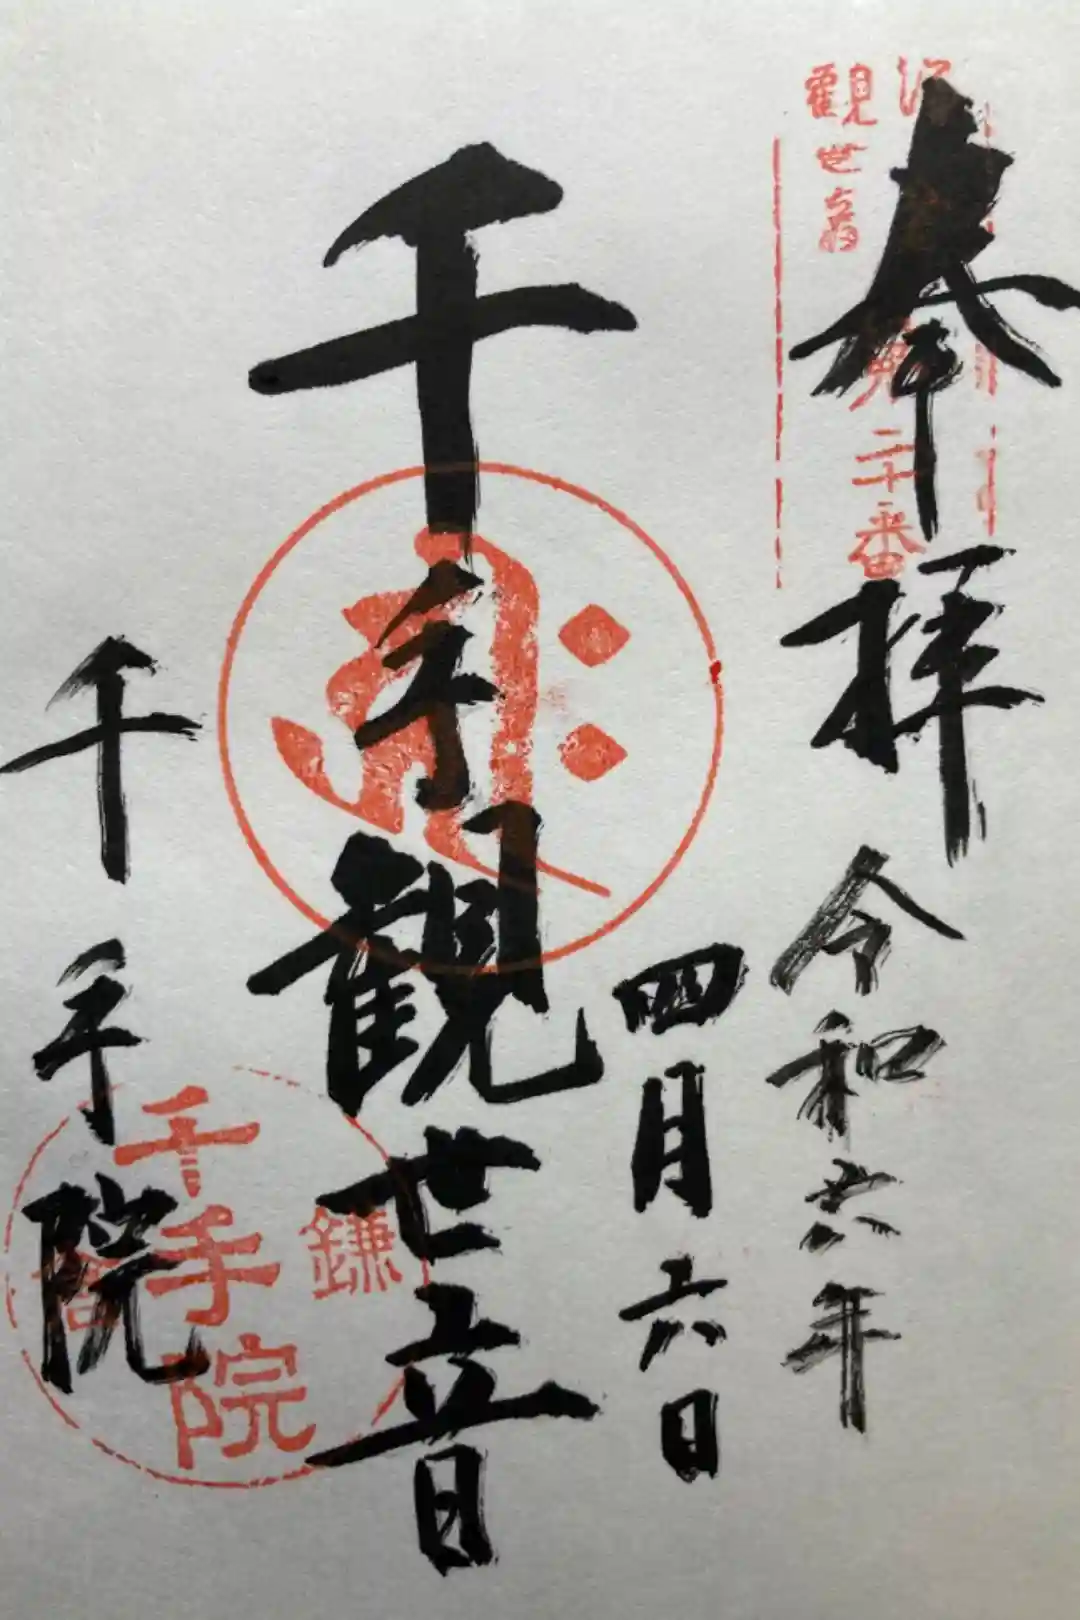 奉拝
令和六年
四月六日
千手観世音
千手院
観世音
第二十番
鎌
千手院